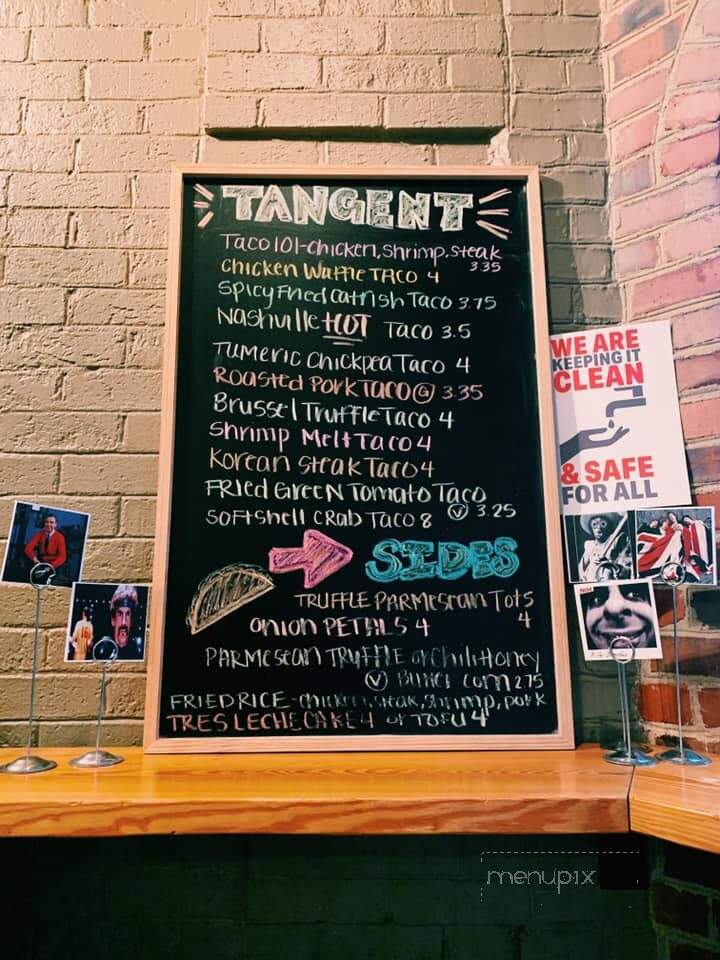 TANGENT
Taco 101-chicken, shrimp, steak
3.35
Chicken Waffle TACO 4
Spicy Fried catfish Taco 3.75
Nashville HOT Taco 3.5
Tumeric Chickpea Taco 4
ROASTED PORK TACO G 3.35
Brussel Truffle Taco 4
Shrimp Melt Taco 4
Korean Steak Taco 4
FRied GreeN Tomato Taco
V 3.25
SOFTshell CRab Taco 8
SIDES
TRUFFLE PARMesean Tots
4
onion PETALS 4
PARMesean TRUFFLE or Chili Honey
V Butter Corn 2.75
FRIED RICE - chicken, steak, shrimp, pork
TRES LECHE CAKE 4 or TOFU 4
WE ARE
KEEPING IT
CLEAN
& SAFE
FOR ALL
menupix